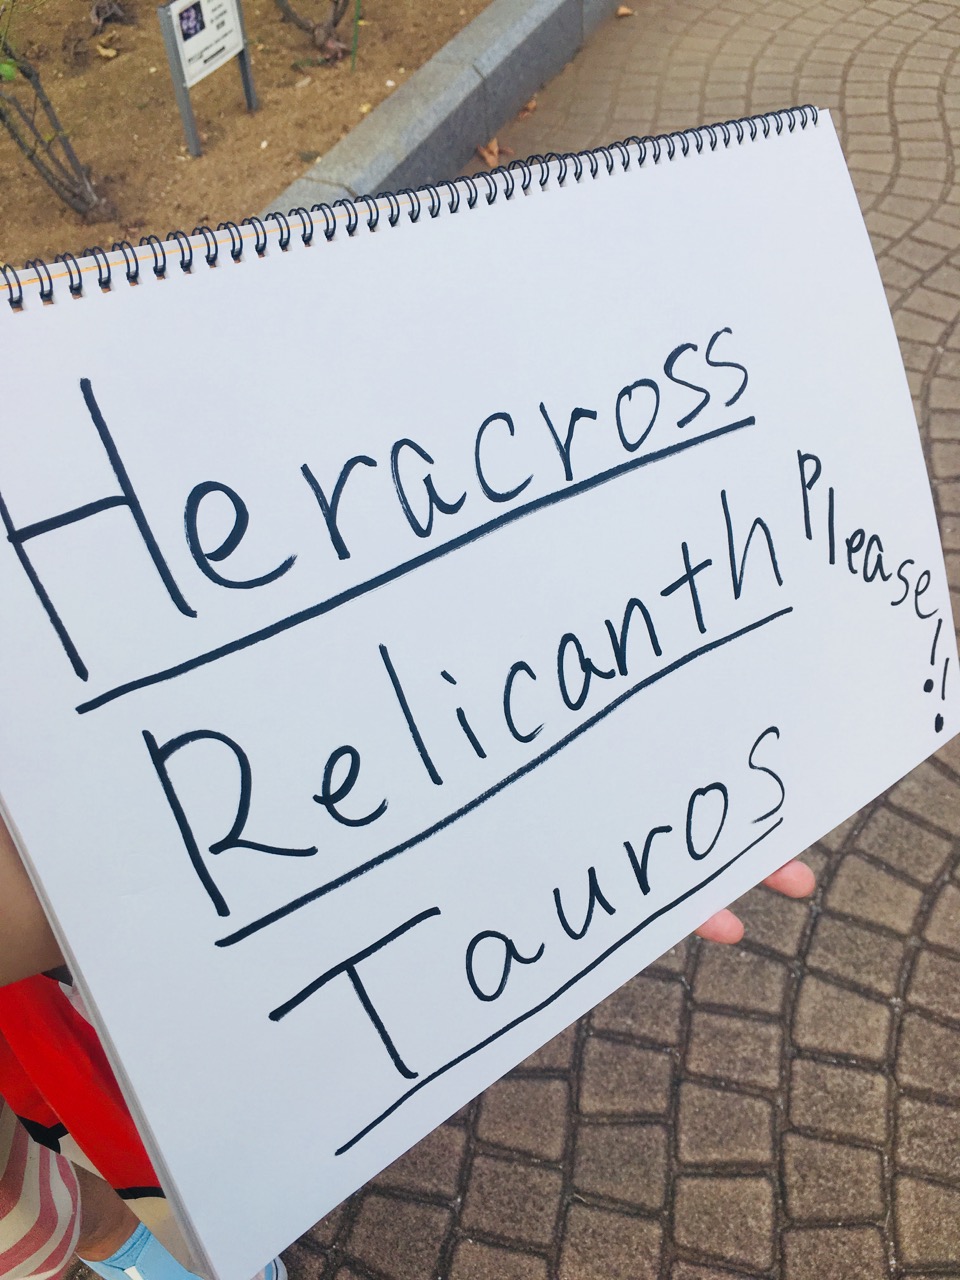 Heracross
Relicanth
Tauros
Please!!